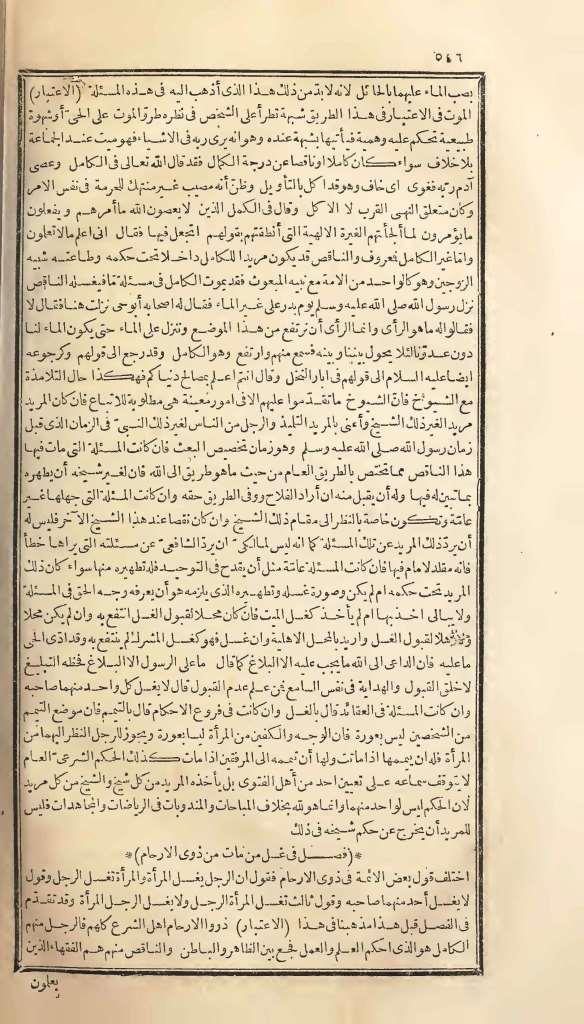 ٥٤٦
بصب الماء عليهما بالحائل لانه لابد من ذلك هذا الذى أذهب اليه فى هذه المسئلة (الاعتبار)
الموت فى الاعتبار فى هذا الطريق شبهة تطرأ على الشخص فى نظره طرة الموت على الحى أو شهوة
طبيعية تحكم عليه وهمية فيأتيها بشبهة عنده وهو انه يرى ربه فى الاشياء فهو ميت عند الجماعة
بلا خلاف سواء كان كاملا أو ناقصا عن درجة الكمال فقد قال الله تعالى فى الكامل وعصى
آدم ربه فغوى اى خاف وهو قد اكل بالتأويل وظن أنه مصيب غير منتهك للحرمة فى نفس الامر
وكان متعلق النهى القرب لا الاكل وقال فى الكمل الذين لا يعصون الله ما أمرهم ويفعلون
ما يؤمرون لما ألجأتهم الغيرة الالهية التى أنطقتهم بقولهم اتجعل فيها فقال انى اعلم ما لا تعلون
واما غير الكامل فمعروف والناقص قد يكون مريدا للكامل داخلا تحت حكمه وطاعته شبيه
الزوجين وهو كالواحد من الامة مع نبيه المبعوث فقد يموت الكامل فى مسئلة ما فيغسله الناقص
نزل رسول الله صلى الله عليه وسلم يوم بدر على غير الماء فقال له اصحابه أبوحى نزلت هنا فقال لا
فقالوا له ما هو الرأى وانما الرأى أن نرتفع من هذا الموضع وتنزل على الماء حتى يكون الماء لنا
دون عدونا لئلا يحول بيننا وبينه فسمع منهم وارتفع وهو الكامل وقد رجع الى قولهم وكرجوعه
ايضا عليه السلام الى قولهم فى ابار النخل وقال انتم اعلم بمصالح دنياكم فهكذا حال التلامذة
مع الشيوخ فان الشيوخ ما تقدموا عليهم الا فى امور معينة هى مطلوبة للاتباع فان كان المريد
مريد الغير ذلك الشيخ وأعنى بالمريد التليذ والرجل من الناس لغير ذلك النبى فى الزمان الذى قبل
زمان رسول الله صلى الله عليه وسلم وهو زمان تخصيص البعث فان كانت المسئلة التى مات فيها
هذا الناقص مما تختص بالطريق العام من حيث ما هو طريق الى الله فان لغير شيخه أن يطهره
بما تبين له فيها وله أن يقبل منه ان أراد الفلاح ووفى الطريق حقه وان كانت المسئلة التى جهلها غير
عامة وتكون خاصة بالنظر الى مقام ذلك الشيخ وان كان نقصا عند هذا الشيخ الآخر فليس له
أن يرد ذلك المريد عن تلك المسئلة كما انه ليس لمالكى ان يرد الشافعى عن مسئلته التى يراها خطأ
فانه مقلد لامام فيها فان كانت المسئلة عامة مثل أن يقدح فى التوحيد فله تطهيره منها سواء كان ذلك
المريد تحت حكمه ام لم يكن وصورة غسله وتطهيره الذى يلزمه هو أن يعرفه وجه الحق فى المسئلة
ولا يبالى اخذ بها ام لم يأخذ كغسل الميت فان كان محلا لقبول الغسل انتفع به وان لم يكن محلا
لقبول الغسل واريد بالمحل الاهلية وان غسل فهو كغسل المشرك لم ينتفع به وقد ادّى الحى
ما عليه فان الداعى الى الله ما يجب عليه الا البلاغ كما قال ما على الرسول الا البلاغ فحظه التبليغ
لا خلق القبول والهداية فى نفس السامع فمن علم عدم القبول قال لا يغسل كل واحد منهما صاحبه
وان كانت المسئلة فى العقائد قال بالغسل وان كانت فى فروع الاحكام قال بالتيمم فان موضع التيمم
من الشخصين ليس بعورة فان الوجه والكفين من المرأة ليسا بعورة ويجوز للرجل النظر اليهما من
المرأة فله ان ييممها اذا ماتت ولها أن تيممه الى المرفقين اذا مات كذلك الحكم الشرعى العام
لا يتوقف سماعه على تعيين احد من أهل الفتوى بل يأخذه المريد من كل شيخ والشيخ من كل مريد
لان الحكم ليس لواحد منهما وانما هو لله بخلاف المباحات والمندوبات فى الرياضات والمجاهدات فليس
للمريد أن يخرج عن حكم شيخه فى ذلك
*(فصل فى غسل من مات من ذوى الارحام)*
اختلف قول بعض الائمة فى ذوى الارحام فقول ان الرجل يغسل المرأة والمرأة تغسل الرجل وقول
لا يغسل أحد منهما صاحبه وقول ثالث تغسل المرأة الرجل ولا يغسل الرجل المرأة وقد تقدم
فى الفصل قبل هذا مذهبنا فى هذا (الاعتبار) ذووا الارحام اهل الشرع كلهم فالرجل منهم
الكامل هو الذى احكم العلم والعمل فجمع بين الظاهر والباطن والناقص منهم هم الفقهاء الذين
يعلون